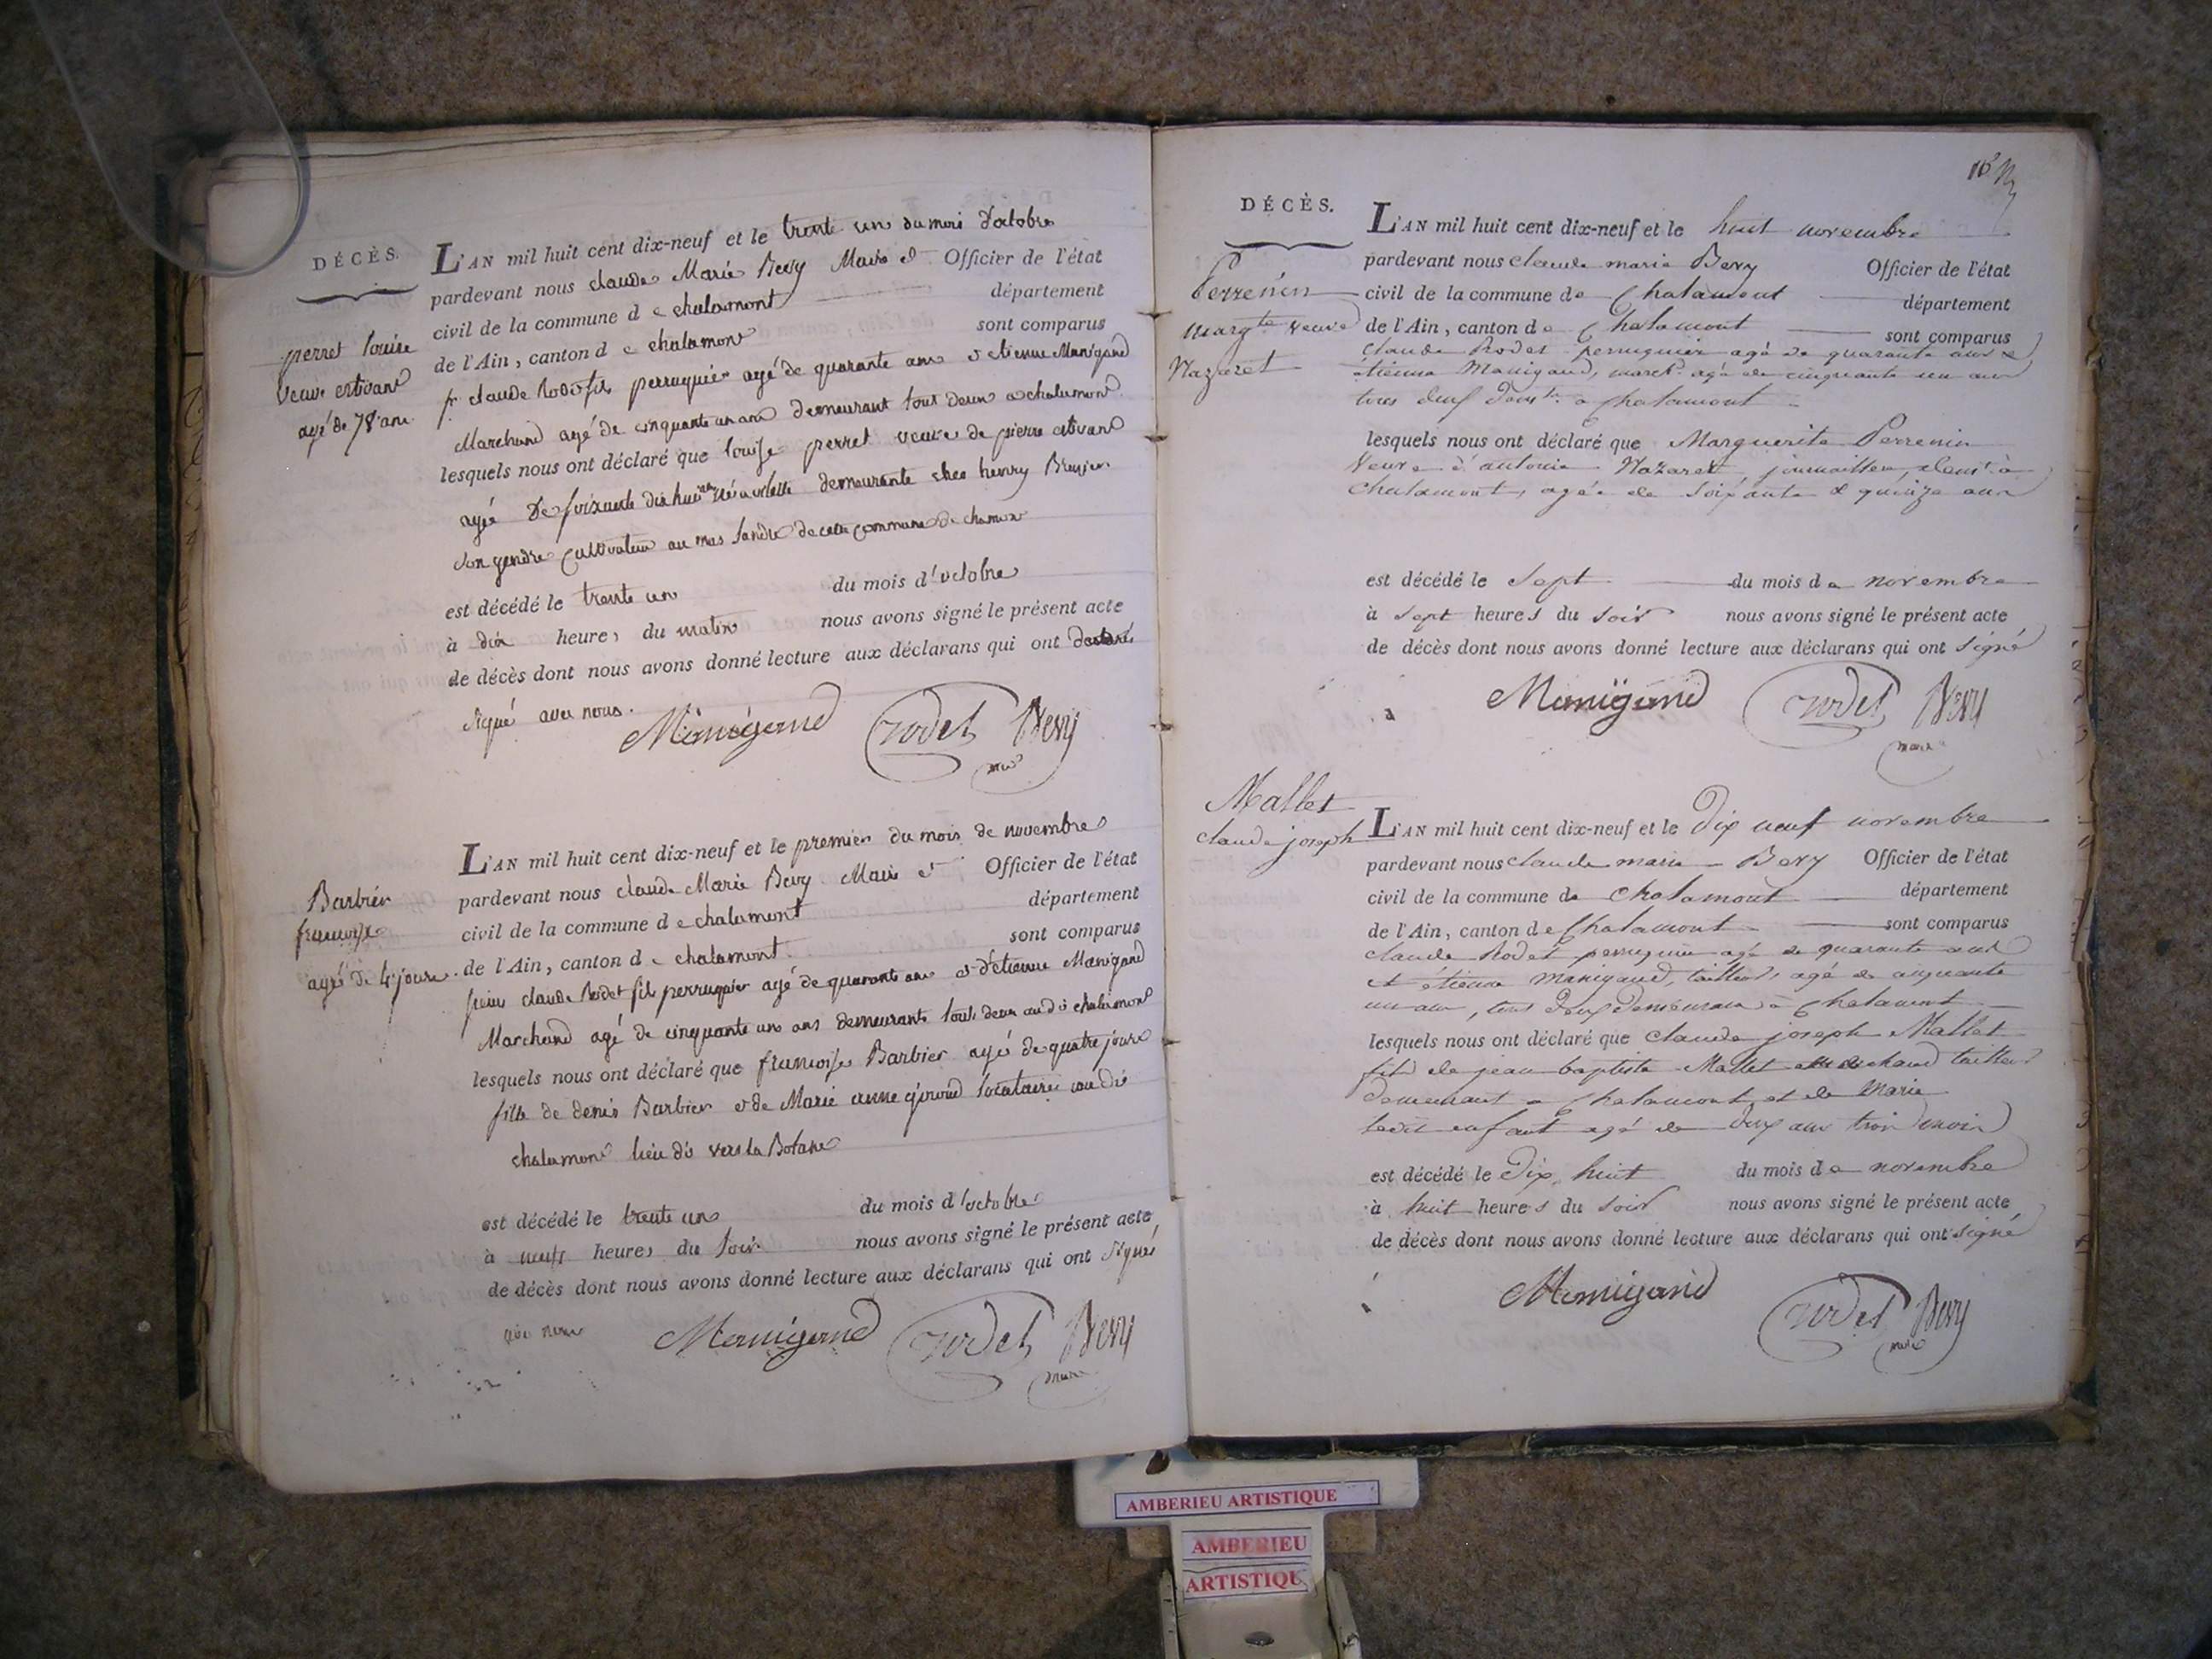 DÉCÈS.
L'AN mil huit cent dix-neuf et le trente un du mois d'octobre
pardevant nous claude Marie Bevy Maire et Officier de l'état
civil de la commune de chalamont département
de l'Ain, canton de chalamont sont comparus
perret louise
Veuve estivant
agé de 78 ans
claude Rodet fils perruquier agé de quarante ans et etienne Manigand
Marchand agé de cinquante un ans demeurant tout deux a chalamont
lesquels nous ont déclaré que louise perret veuve de pierre estivant
agée De soixante dix huit demeurante chez henry
son gendre cultivateur au mas de cette commune de
est décédé le trente un du mois d'octobre
à dix heures du matin nous avons signé le présent acte
de décès dont nous avons donné lecture aux déclarans qui ont
signé avec nous.
Manigand Rodet Bevy
maire
L'AN mil huit cent dix-neuf et le premier du mois de novembre
pardevant nous claude Marie Bevy Maire et Officier de l'état
civil de la commune de chalamont département
de l'Ain, canton de chalamont sont comparus
Barbier
francoise
agée de 4 jours
claude Rodet fils perruquier agé de quarante ans et d'etienne Manigand
Marchand agé de cinquante un ans demeurants tout deux audit chalamont
lesquels nous ont déclaré que francoise Barbier agée de quatre jours
fille de denis Barbier et de Marie anne giroud locataires audit
chalamont lieu dit vers la
est décédé le trente un du mois d'octobre
à neuf heures du soir nous avons signé le présent acte,
de décès dont nous avons donné lecture aux déclarans qui ont signés
avec nous
Manigand Rodet Bevy
maire
DÉCÈS.
L'AN mil huit cent dix-neuf et le huit novembre
pardevant nous claude marie Bevy Officier de l'état
civil de la commune de Chalamont département
de l'Ain, canton de Chalamont sont comparus
Perrenin
Margte veuve
Nazaret
Claude Rodet perruquier agé de quarante ans &
étienne Manigand, march. agé de cinquante un ans
tous deux à Chalamont
lesquels nous ont déclaré que Marguerite Perrenin
Veuve d'antoine Nazaret, à
chalamont, agée de soixante & quinze ans
est décédé le sept du mois de novembre
à sept heures du soir nous avons signé le présent acte
de décès dont nous avons donné lecture aux déclarans qui ont signé
Manigand Rodet Bevy
maire
Mallet
claude joseph
L'AN mil huit cent dix-neuf et le Dix neuf novembre
pardevant nous claude marie Bevy Officier de l'état
civil de la commune de Chalamont département
de l'Ain, canton de Chalamont sont comparus
claude Rodet perruquier agé de quarante ans
et étienne Manigand, tailleur, agé de cinquante
un ans, tous deux demeurant à Chalamont
lesquels nous ont déclaré que claude joseph Mallet
fils de jean baptiste Mallet marchand tailleur
demeurant à Chalamont et de Marie
ledit enfant agé de deux ans trois mois
est décédé le Dix huit du mois de novembre
à huit heures du soir nous avons signé le présent acte
de décès dont nous avons donné lecture aux déclarans qui ont signé
Manigand Rodet Bevy
maire
AMBERIEU ARTISTIQUE
AMBERIEU
ARTISTIQU